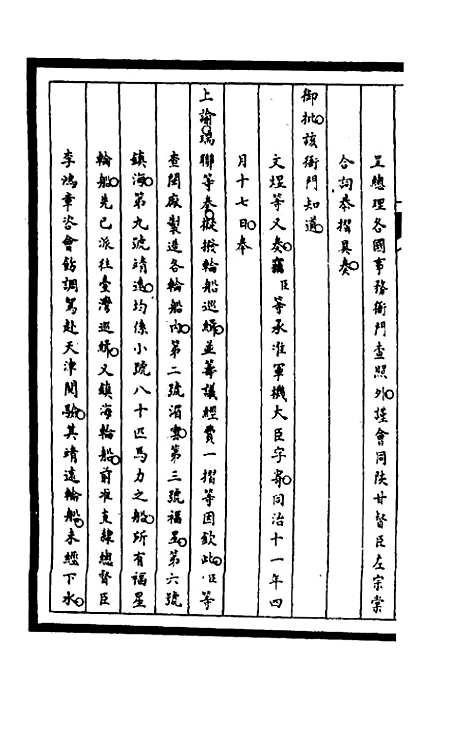 呈總理各國事務衙門查照外謹會同陝甘督臣左宗棠
合詞恭摺具奏
御批該衙門知道
文煜等又奏竊臣等承准軍機大臣字寄同治十一年四
月十七日奉
上諭瑞聯等奏擬撥輪船巡緝並籌議經費一摺等因欽此臣等
查閩廠製造各輪船內第二號湄雲第三號福星第六號
鎮海第九號靖遠均係小號八十匹馬力之船所有福星
輪船先已派往臺灣巡緝又鎮海輪船前准直隸總督臣
李鴻章咨會飭調駕赴天津閱驗其靖遠輪船未經下水